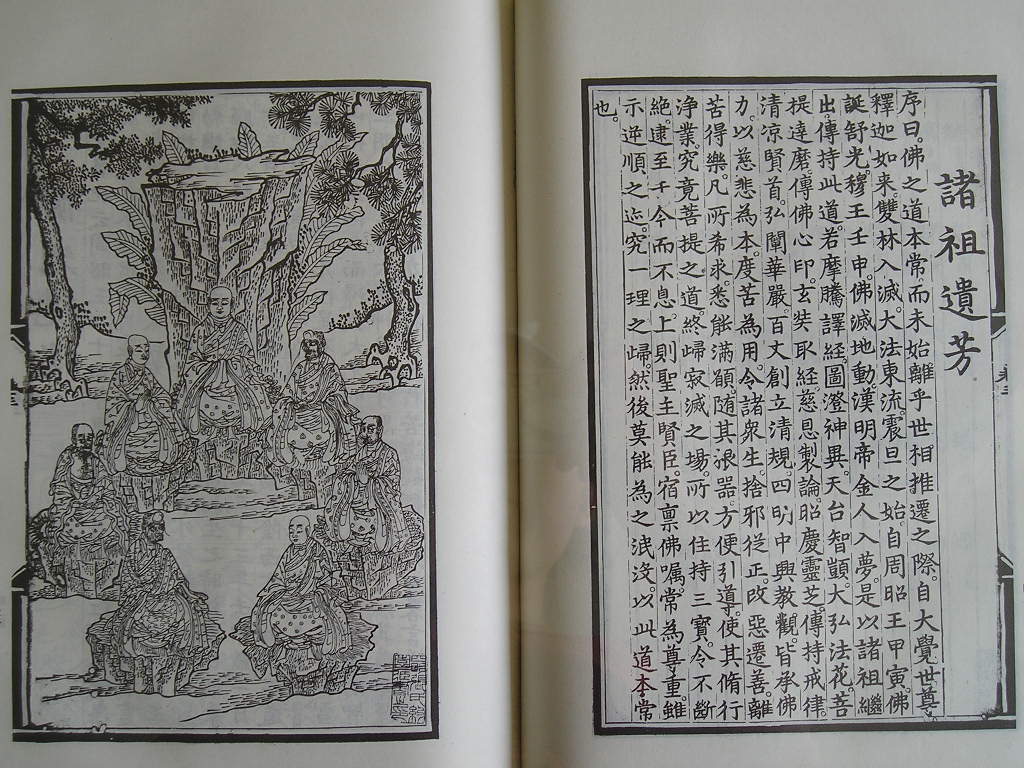 諸祖遺芳
序曰佛之道本常而未始離乎世相推遷之際。自大覺世尊
釋迦如来雙林入滅。大法東流。震旦之始。自周昭王甲寅。佛
誕舒光。穆王壬申。佛滅地動。漢明帝金人入夢。是以諸祖繼
出。傳持此道。若摩騰譯經。圖澄神異。天台智顗。大弘法花。菩
提達磨。傳佛心印。玄奘取經。慈恩製論。昭慶靈芝。傳持戒律。
清凉賢首。弘闡華嚴。百丈創立清規。四明中興教觀。皆承佛
力。以慈悲為本。度苦為用。令諸衆生。捨邪從正。改惡遷善。離
苦得樂。凡所希求。悉能滿願。随其根器。方便引導。使其脩行
浄業。究竟菩提之道。終歸寂滅之場。所以住持三寶。令不斷
絶。逮至于今而不息。上則聖主賢臣。宿禀佛嘱。常為尊重。雖
示逆順之迹。究一理之歸。然後莫能為之泯没。以此道本常
也。